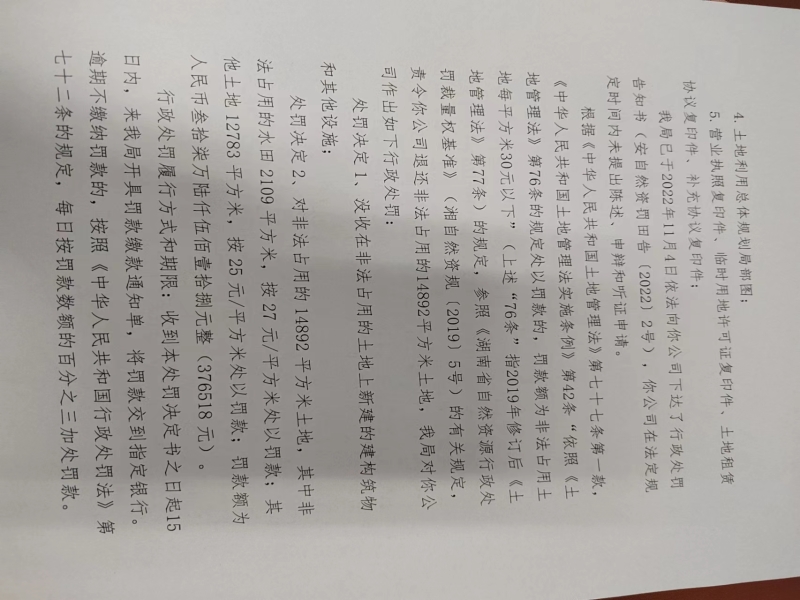 4.土地利用总体规划局部图；
5.营业执照复印件、临时用地许可证复印件、土地租赁
协议复印件、补充协议复印件；
我局已于2022年11月4日依法向你公司下达了行政处罚
告知书（安自然资罚田告（2022）2号），你公司在法定规
定时间内未提出陈述、申辩和听证申请。
根据《中华人民共和国土地管理法》第七十七条第一款，
《中华人民共和国土地管理法实施条例》第42条“依照《土
地管理法》第76条的规定处以罚款的，罚款额为非法占用土
地每平方米30元以下”（上述“76条”指2019年修订后《土
地管理法》第77条）的规定，参照《湖南省自然资源行政处
罚裁量权基准》（湘自然资规〔2019〕5号）的有关规定，
责令你公司退还非法占用的14892平方米土地，我局对你公
司作出如下行政处罚：
处罚决定1、没收在非法占用的土地上新建的建构筑物
和其他设施；
处罚决定2、对非法占用的14892平方米土地，其中非
法占用的水田2109平方米，按27元/平方米处以罚款；其
他土地12783平方米，按25元/平方米处以罚款；罚款额为
人民币叁拾柒万陆仟伍佰壹拾捌元整（376518元）。
行政处罚履行方式和期限：收到本处罚决定书之日起15
日内，来我局开具罚款缴款通知单，将罚款交到指定银行。
逾期不缴纳罚款的，按照《中华人民共和国行政处罚法》第
七十二条的规定，每日按罚款数额的百分之三加处罚款。